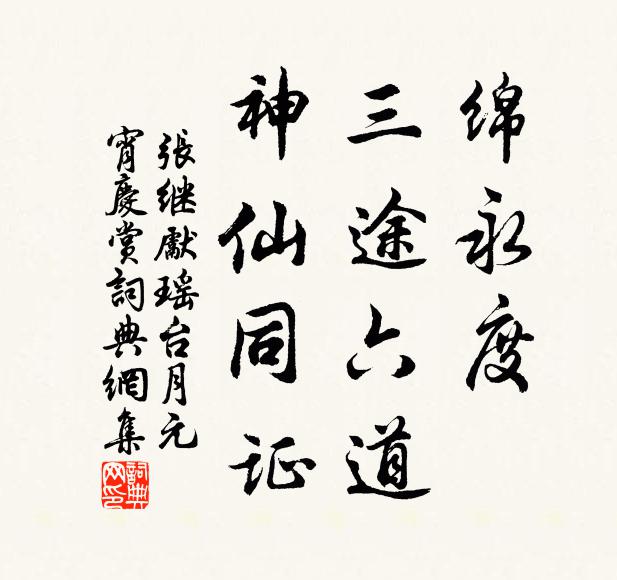 绵永度
三途六道
神仙同证
張继獻瑶台月元
宵慶賞詞典網集
詞典
网印